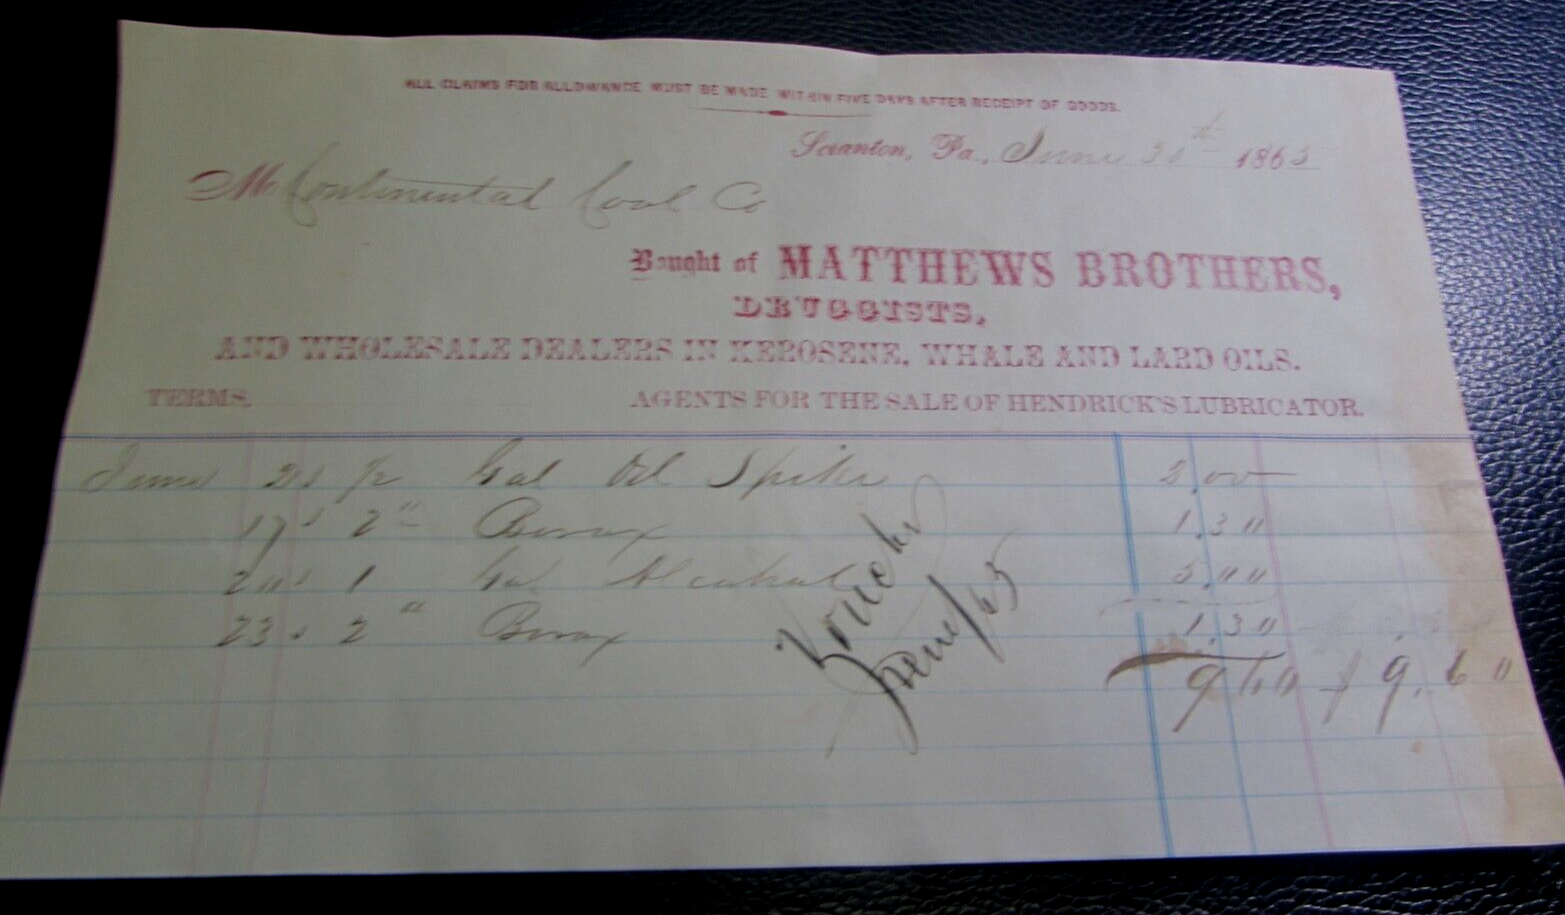 ALL CLAIMS FOR ALLOWANCE MUST BE MADE WITHIN FIVE DAYS AFTER RECEIPT OF GOODS.
Scranton, Pa., June 30th 1865
M Continental Coal Co
Bought of MATTHEWS BROTHERS,
DRUGGISTS,
AND WHOLESALE DEALERS IN KEROSENE, WHALE AND LARD OILS.
TERMS. AGENTS FOR THE SALE OF HENDRICK'S LUBRICATOR.
June Gal Oil Spike 2.00
17 2 " Borax 1.30
20 1 Gal Alcohol 5.00
23 2 " Borax 1.30
9 60 $ 9.60
Voucher
June/65